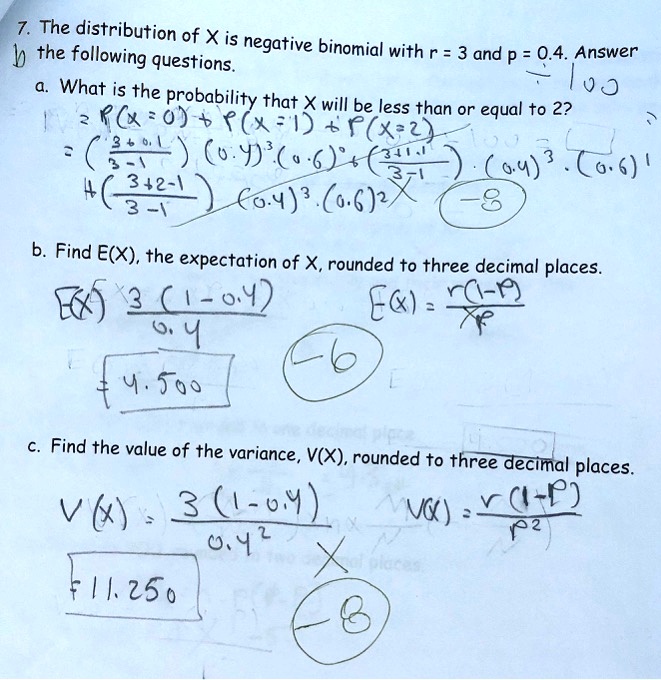 7. The distribution of X is negative binomial with r = 3 and p = 0.4. Answer
the following questions.
÷ 100
a. What is the probability that X will be less than or equal to 2?
= P(X = 0) + P(X = 1) + P(X = 2)
= (3+0-1 / 3-1) (0.4)³.(0.6)⁰ + (3+1-1 / 3-1) . (0.4)³ . (0.6)¹
+ (3+2-1 / 3-1) (0.4)³.(0.6)² X -8
b. Find E(X), the expectation of X, rounded to three decimal places.
E(X) = 3(1-0.4) / 0.4 E(X) = r(1-P) / P
-6
= 4.500
c. Find the value of the variance, V(X), rounded to three decimal places.
V(X) = 3(1-0.4) / 0.4² V(X) = r(1-P) / P²
X
= 11.250
-8